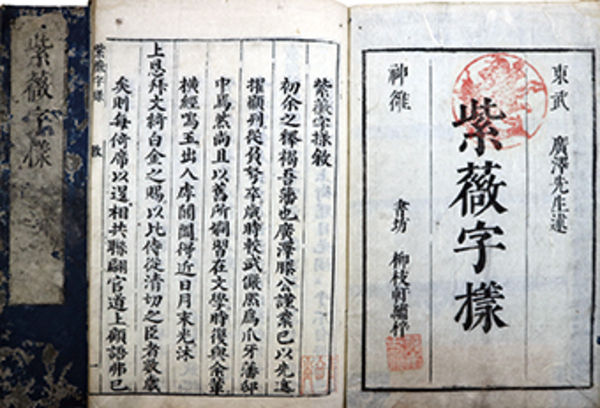 東武 廣澤先生述
紫薇字樣
神雒 書坊 柳枝軒繡梓
紫薇字樣敘
初余之釋褐吾藩也廣澤滕公謹業已以先進
擢顯列從員 卒歲時校武儼然爲爪牙藩邸
中焉然尚且以舊所嫻習在文學時復與余輩
橫經寫玉出入 得近日月末光沐
上恩拜文綺白金之賜以比侍從清切之臣者數歲
矣則每倚席以還相共聯翩官道上顧語弗已
紫薇字樣 敘
紫薇字樣